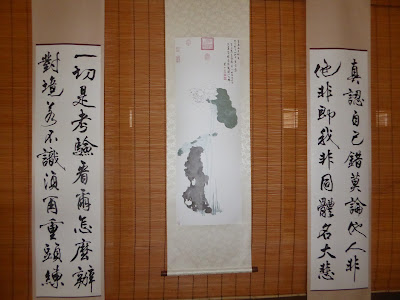 真認自己錯莫論他人非
他非即我非同體名大悲
一切是考驗看爾怎麼辦
對境若不識須再重頭練